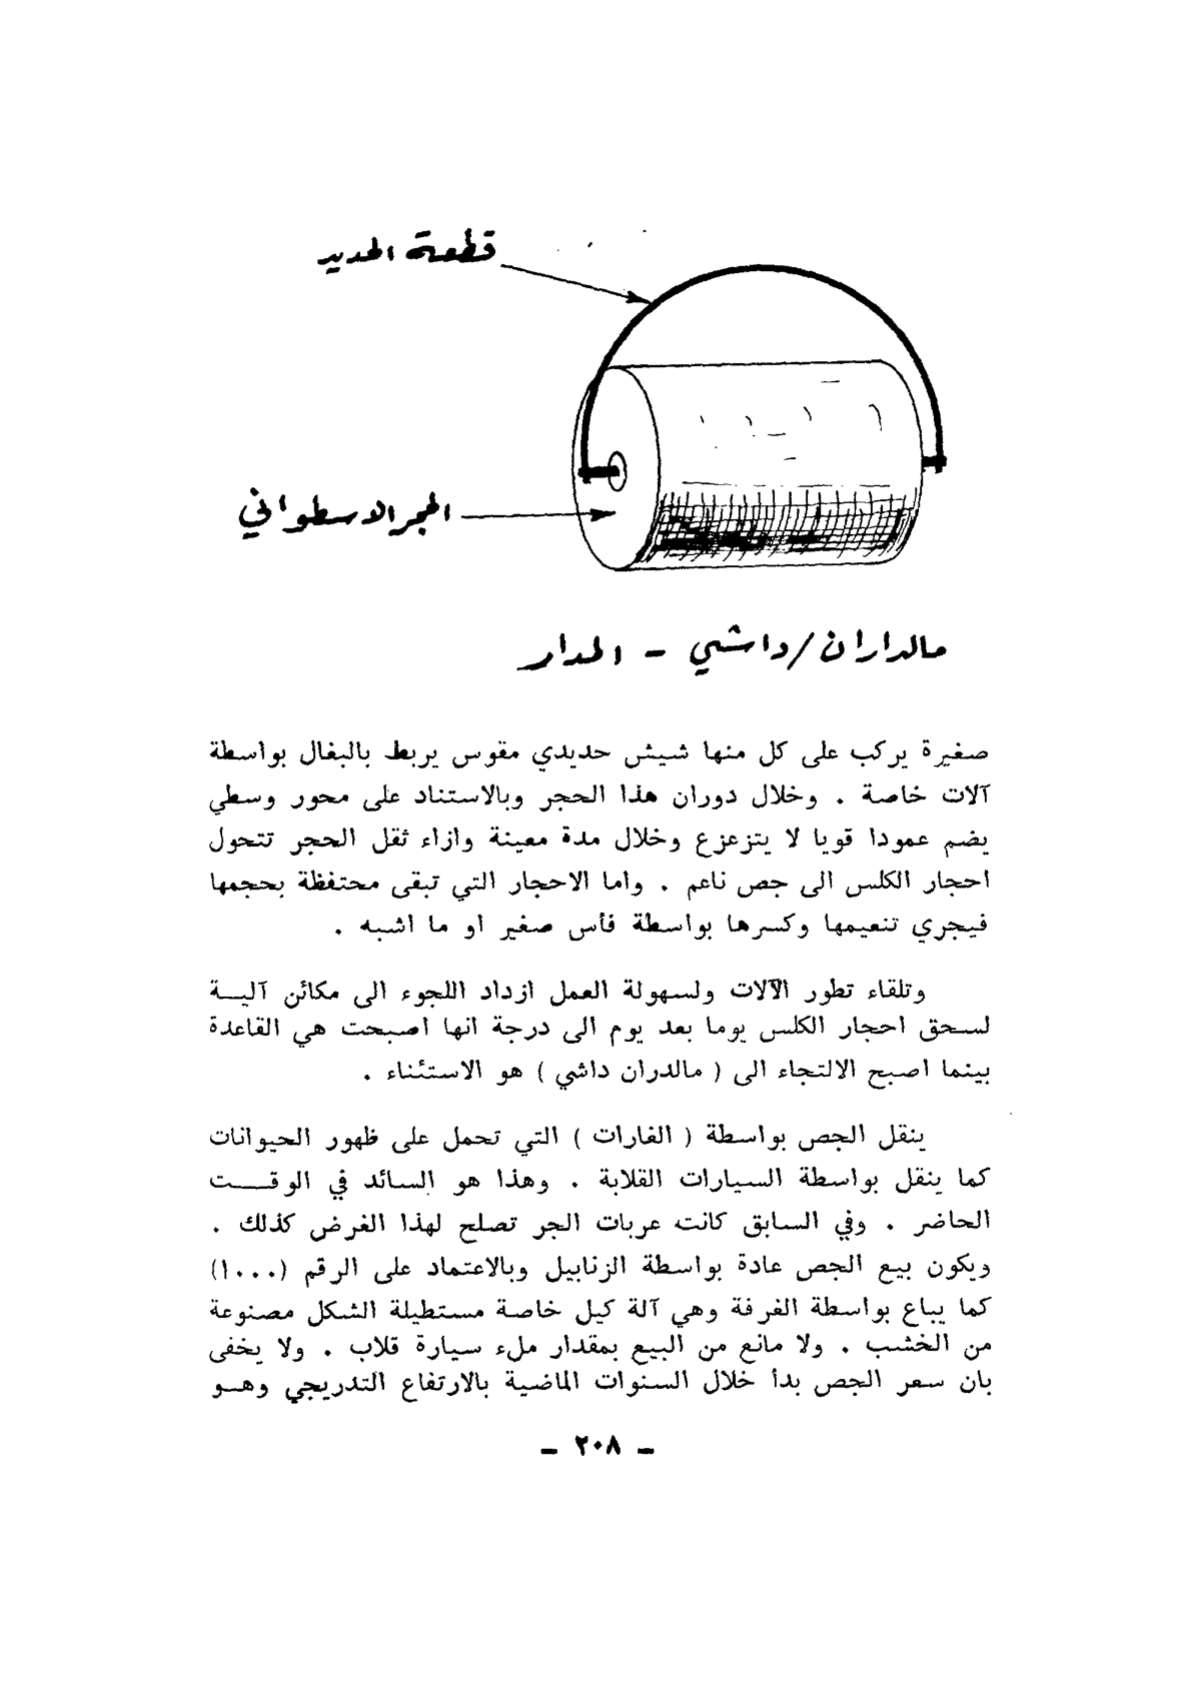 قطعة الحديد
الحجر الاسطواني
مالداران/داشي - المدار
صغيرة يركب على كل منها شيش حديدي مقوس يربط بالبغال بواسطة
آلات خاصة . وخلال دوران هذا الحجر وبالاستناد على محور وسطي
يضم عمودا قويا لا يتزعزع وخلال مدة معينة وازاء ثقل الحجر تتحول
احجار الكلس الى جص ناعم . واما الاحجار التي تبقى محتفظة بحجمها
فيجري تنعيمها وكسرها بواسطة فأس صغير او ما اشبه .
وتلقاء تطور الآلات ولسهولة العمل ازداد اللجوء الى مكائن آليـة
لسحق احجار الكلس يوما بعد يوم الى درجة انها اصبحت هي القاعدة
بينما اصبح الالتجاء الى ( مالدران داشي ) هو الاستثناء .
ينقل الجص بواسطة ( الغارات ) التي تحمل على ظهور الحيوانات
كما ينقل بواسطة السيارات القلابة . وهذا هو السائد في الوقـــت
الحاضر . وفي السابق كانت عربات الجر تصلح لهذا الغرض كذلك .
ويكون بيع الجص عادة بواسطة الزنابيل وبالاعتماد على الرقم (١٠٠٠)
كما يباع بواسطة الغرفة وهي آلة كيل خاصة مستطيلة الشكل مصنوعة
من الخشب . ولا مانع من البيع بمقدار ملء سيارة قلاب . ولا يخفى
بان سعر الجص بدأ خلال السنوات الماضية بالارتفاع التدريجي وهـو
- ٢٠٨ -